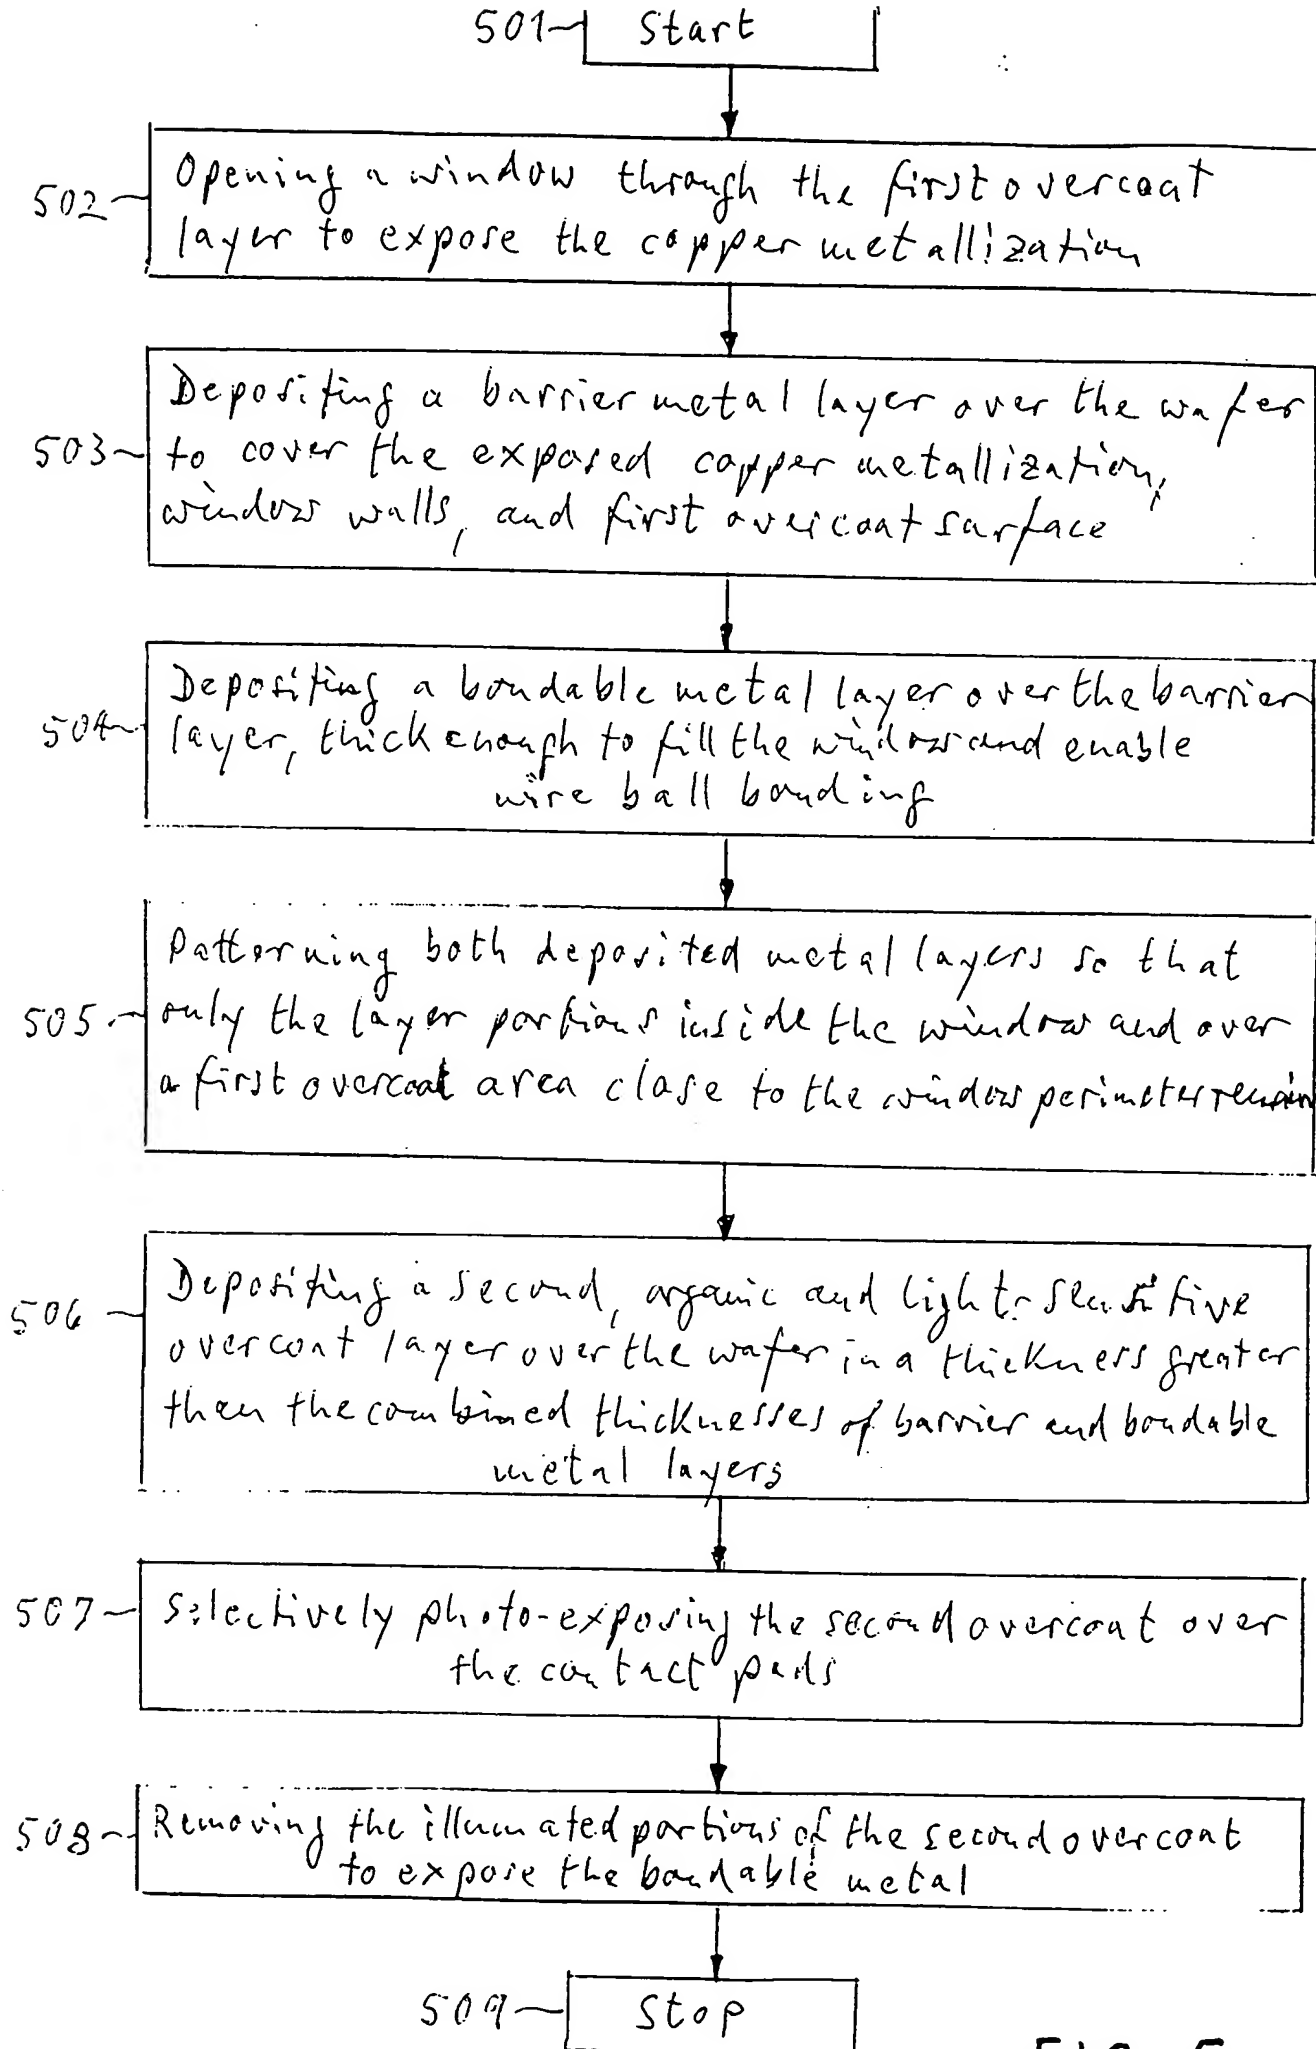 501 Start
502 Opening a window through the first overcoat
layer to expose the copper metallization
503 Depositing a barrier metal layer over the wafer
to cover the exposed copper metallization,
window walls, and first overcoat surface
504 Depositing a bondable metal layer over the barrier
layer, thick enough to fill the window and enable
wire ball bonding
505 Patterning both deposited metal layers so that
only the layer portions inside the window and over
a first overcoat area close to the window perimeter remain
506 Depositing a second, organic and light-sensitive
overcoat layer over the wafer in a thickness greater
then the combined thicknesses of barrier and bondable
metal layers
507 Selectively photo-exposing the second overcoat over
the contact pads
508 Removing the illumated portions of the second overcoat
to expose the bondable metal
509 Stop